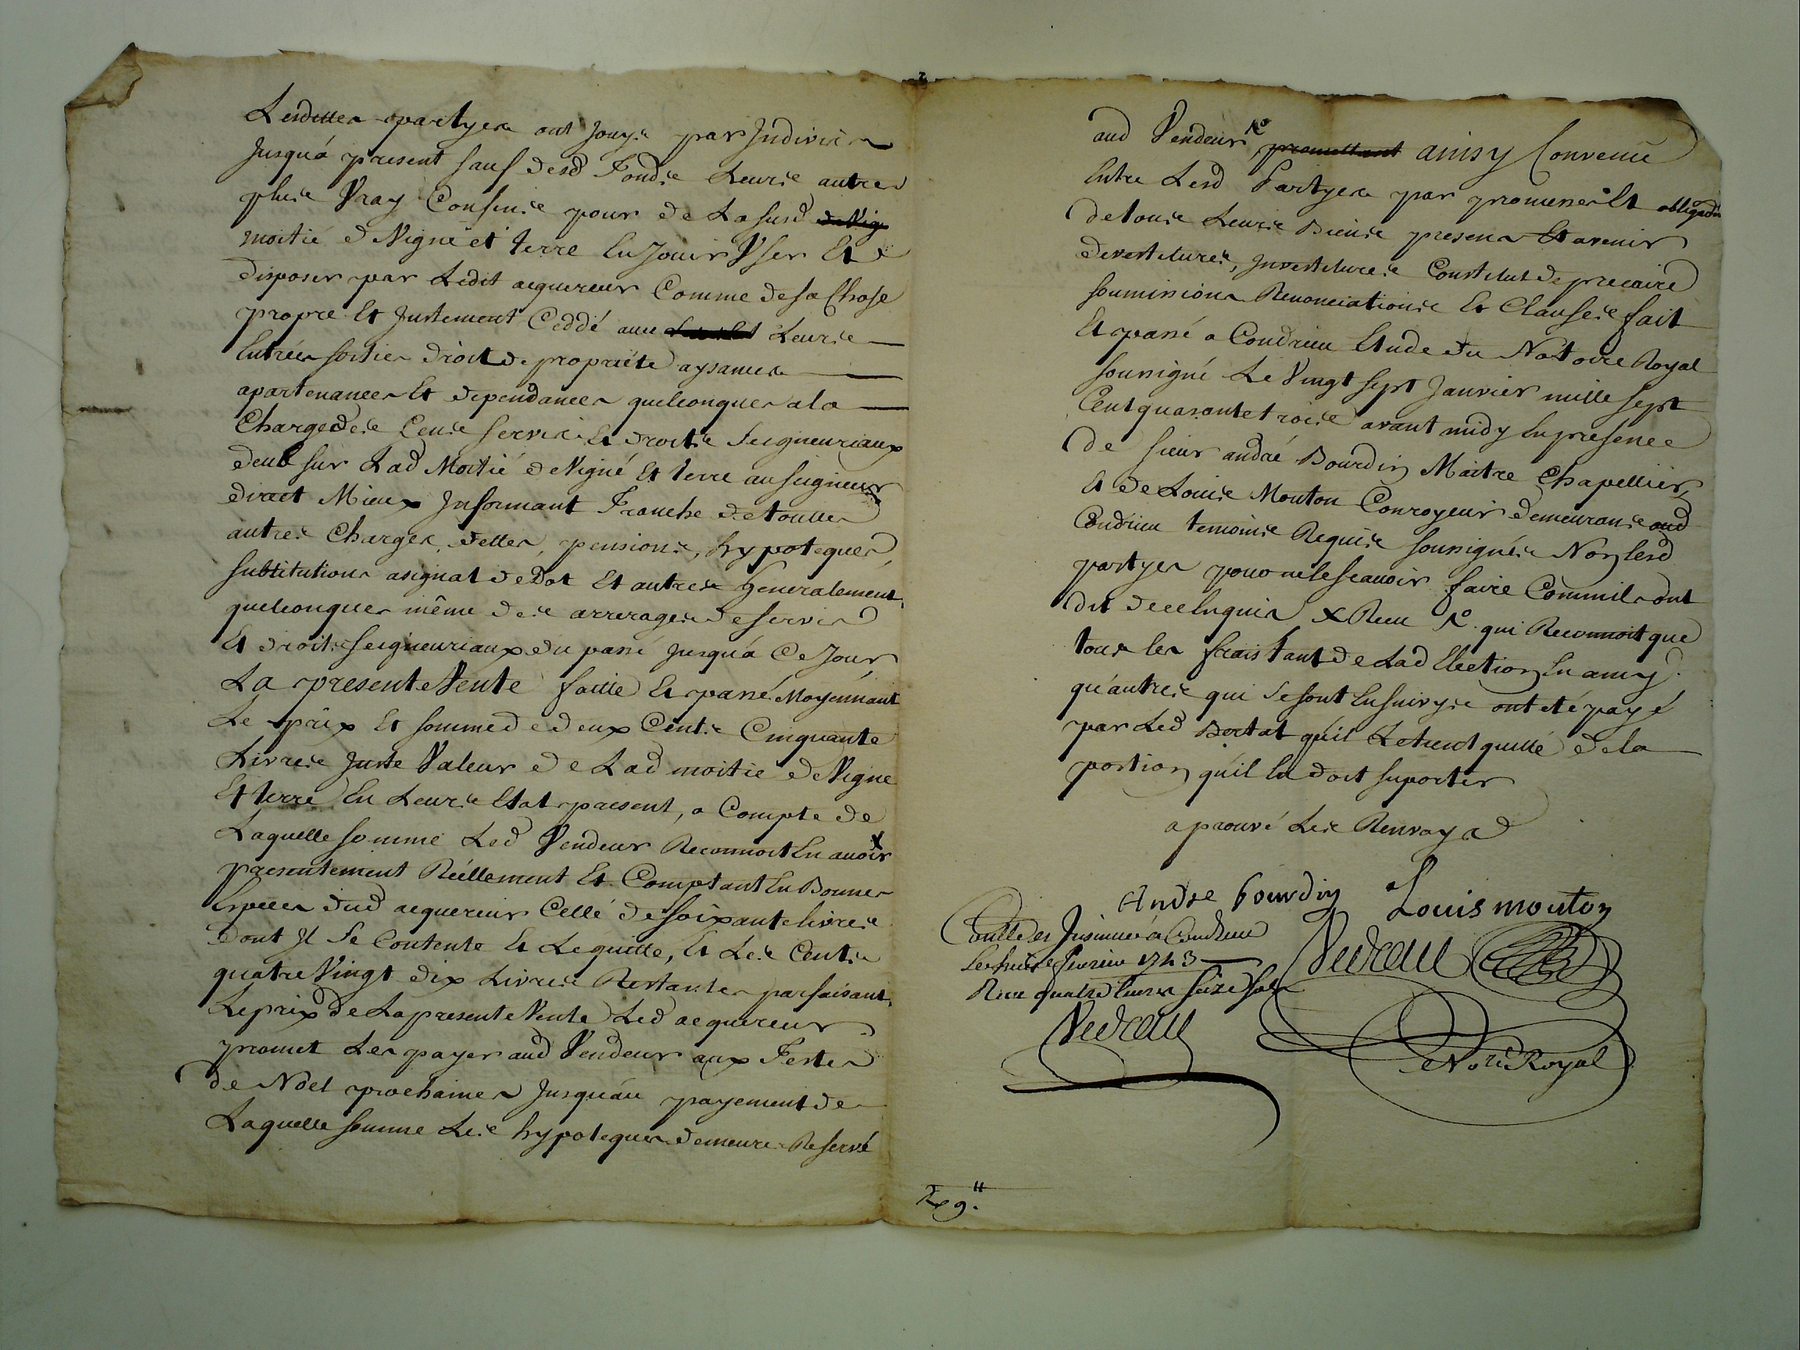 Lesdittes partyes ont Jouys par Indivis
Jusqu'à present sauf desd Fonds Leurs autres
plus Vray Confins pour de La susd
moitié de Vigne et terre En Jouir User Et
disposer par Ledit acquereur Comme de sa Chose
propre Et Justement Ceddé avec Leurs
Entrées sorties droit de propriété aysances
apartenances Et dependances quelconques a la
Charge des Cens servis Et droits Seigneuriaux
deub sur Lad Moitié de Vigne Et terre au seigneur
direct Mieux Informant Franche de touttes
autres Charges, dettes, pensions, hypoteques
substitutions asignat de Dot Et autres Generalement
quelconques même des arrerages de servis
Et droits seigneuriaux du passé Jusqu'à Ce Jour
La presente Vente faitte Et passé Moyennant
Le prix Et somme de deux Cents Cinquante
Livres Juste Valeur de Lad moitie de Vigne
Et terre En Leurs Etat present, a Compte de
Laquelle somme Led Vendeur Reconnoit En avoir x
presentement Réellement Et Comptant En Bonnes
Especes dud acquereur Cellé de soixante livres
dont Il Se Contente Et Le quitte, Et Les Cents
quatre Vingt dix Livres Restantes parfaisant
Le prix de La presente Vente Led acquereur
promet Les payer aud Vendeur aux Festes
de Noel prochaines Jusqu'au payement de
Laquelle somme Les hypoteques demeure Reservé
aud Vendeur promettant ainsy Convenu
Entre Lesd Partyes par promesse Et obligation
de tous Leurs Biens presens Et avenir
devestitures, Investitures Constitut de precaire
soumissions Renonciations Et Clauses fait
Et passé a Condrieu Etude du Notaire Royal
soussigné Le Vingt sept Janvier mille sept
Cent quarante trois avant midy En presence
de sieur andré Bourdin Maitre Chapellier,
Et de Louis Mouton Conroyeur demeurans aud
Condrieu temoins Requis soussignés Non lesd
partyes pour ne le scauoir faire Comm'ils ont
dit de ce Enquis x Receu qui Reconnoit que
tous les frais tant de Lad Election En amy
qu'autres qui Se sont Ensuivys ont été payé
par Led Bertat qu'il Le tient quitté de la
portion qu'il En doit suporter
aprouvé Les Renvoys
Andre bourdin Louis mouton
Controllé et Insinué a Condrieu
Le huit fevrier 1743
Receu quatre livres seize sols
Notre Royal